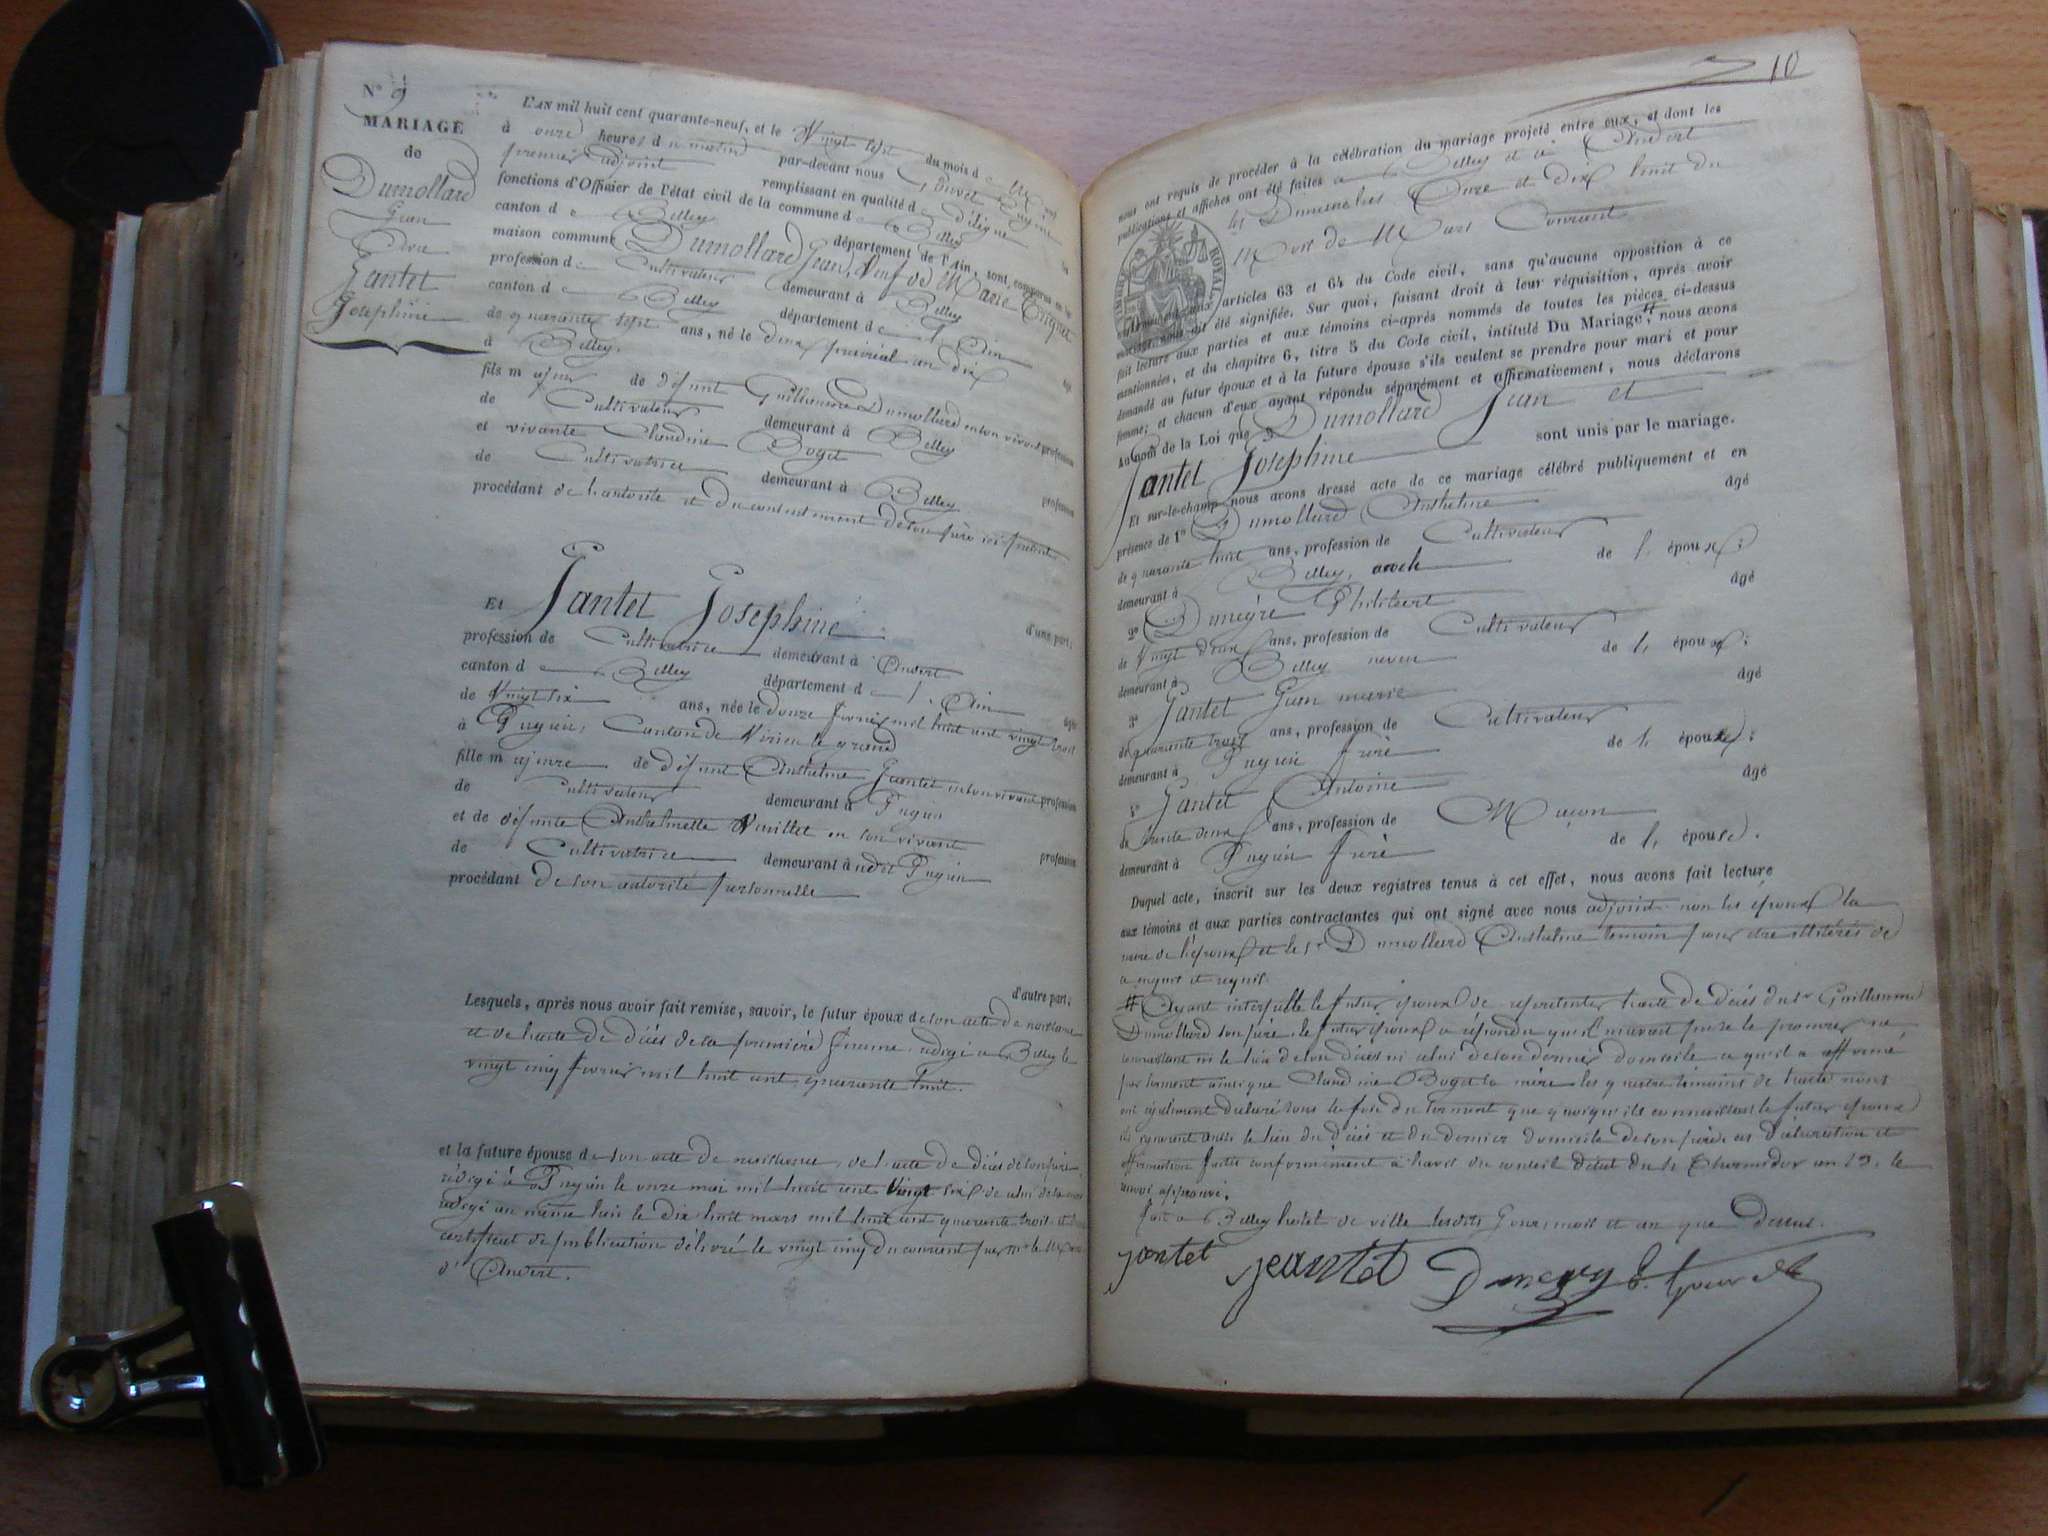 N° 9
MARIAGE
de
Dumollard
Jean
Avec
Jantet
Josephine
L'AN mil huit cent quarante-neuf, et le Vingt sept du mois de Mars
à onze heures du matin par-devant nous
premier adjoint remplissant en qualité de délégué
fonctions d'Officier de l'état civil de la commune de Belley
canton de Belley département de l'Ain, sont comparus en la
maison commune Dumollard Jean, Veuf de Marie
profession de Cultivateur demeurant à Belley
canton de Belley département de l'Ain âgé
de quarante sept ans, né le deux prairéal an dix
à Belley.
fils majeur de défunt Guillaume Dumollard en son vivant profession
de Cultivateur demeurant à Belley
et vivante Claudine Boget profession
de Cultivatrice demeurant à Belley
procédant de l'autorité et du consentement de son père ici présente
d'une part;
Et Jantet Josephine
profession de Cultivatrice demeurant à Andert
canton de Belley département de l'Ain âgée
de Vingt six ans, née le douze février mil huit cent vingt trois
à Pugieu, Canton de Virieu le grand
fille majeure de défunt Anthelme Jantet en son vivant profession
de Cultivateur demeurant à Pugieu
et de défunte Anthelmette Vuillet en son vivant profession
de Cultivatrice demeurant à udit Pugieu
procédant de son autorité personnelle
d'autre part;
Lesquels, après nous avoir fait remise, savoir, le futur époux de son acte de naissance
et de l'acte de décés de sa première femme rédigé à Belley le
vingt cinq février mil huit cent quarante huit.
et la future épouse de son acte de naissance, de l'acte de décés de son père
rédigé à Pugieu le onze mai mil huit cent vingt six de celui de sa mère
rédigé au même lieu le dix huit mars mil huit cent quarante trois et du
certificat de publication délivré le vingt cinq du courant par mr le Maire
d'Andert.
10
nous ont requis de procéder à la célébration du mariage projeté entre eux, et dont les
publications et affiches ont été faites à Belley et à Andert
les Dimanches Onze et dix huit du
Mois de Mars Courant
articles 63 et 64 du Code civil, sans qu'aucune opposition à ce
mariage nous ait été signifiée. Sur quoi, faisant droit à leur réquisition, après avoir
fait lecture aux parties et aux témoins ci-après nommés de toutes les pièces ci-dessus
mentionnées, et du chapitre 6, titre 5 du Code civil, intitulé Du Mariage, # nous avons
demandé au futur époux et à la future épouse s'ils veulent se prendre pour mari et pour
femme; et chacun d'eux ayant répondu séparément et affirmativement, nous déclarons
Au nom de la Loi que Dumollard Jean et
Jantet Josephine sont unis par le mariage.
Et sur-le-champ nous avons dressé acte de ce mariage célébré publiquement et en
présence de 1° Dumollard Anthelme âgé
de quarante huit ans, profession de Cultivateur
demeurant à Belley, oncle de l' époux;
2° Dumègre Philibert âgé
de vingt deux ans, profession de Cultivateur
demeurant à Belley neveu de l' époux;
3° Jantet Jean marie âgé
de quarante trois ans, profession de Cultivateur
demeurant à Pugieu frère de l' épouse;
4° Jantet Antoine âgé
de trente deux ans, profession de Maçon
demeurant à Pugieu frère de l' épouse.
Duquel acte, inscrit sur les deux registres tenus à cet effet, nous avons fait lecture
aux témoins et aux parties contractantes qui ont signé avec nous adjoint non les époux la
mère de l'époux et le sr Dumollard Anthelme témoin pour être illitérés de
ce enquis et requis.
# Ayant interpellé le futur époux de représenter l'acte de décés du sr Guillaume
Dumollard son père, le futur époux a répondu qu'il n'avait pu se le procurer ne
connaissant ni le lieu de son décés ni celui de son dernier domicile ce qu'il a affirmé
par serment ainsi que Claudine Boget sa mère les quatre témoins de l'acte nous
ont également déclaré sous la foi du serment que quoiqu'ils connaissent le futur époux
ils ignorent aussi le lieu du décés et du dernier domicile de son père, ces déclaration et
affirmation faites conformément à l'avis du conseil d'état du 4 Thermidor an 13. le
renvoi approuvé.
fait à Belley hotel de ville lesdits jour, mois et an que dessus.
jantet jeantet